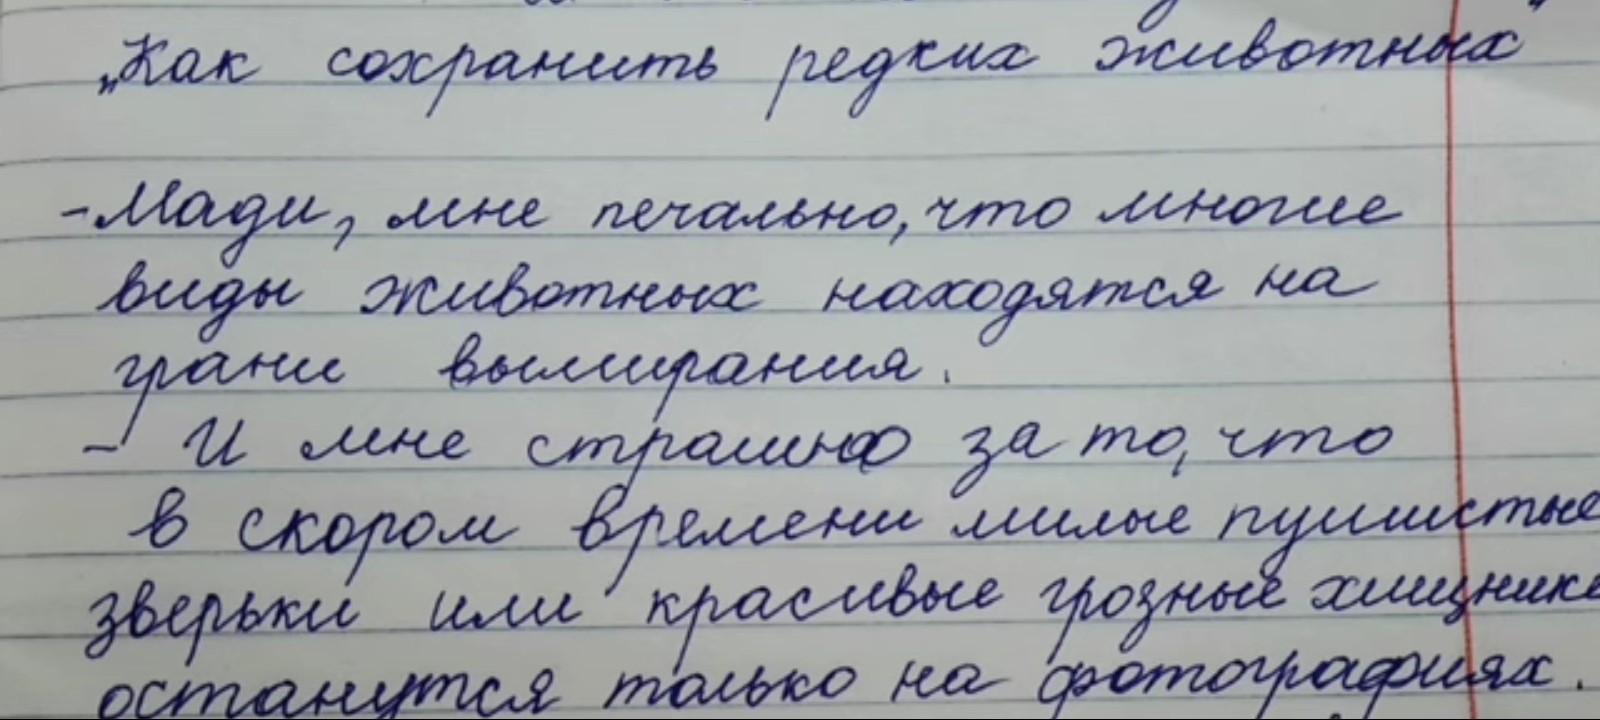 „Как сохранить редких животных"
- Мади, мне печально, что многие
виды животных находятся на
грани вымирания.
- И мне страшно за то, что
в скором времени милые пушистые
зверьки или красивые грозные хищники
останутся только на фотографиях.